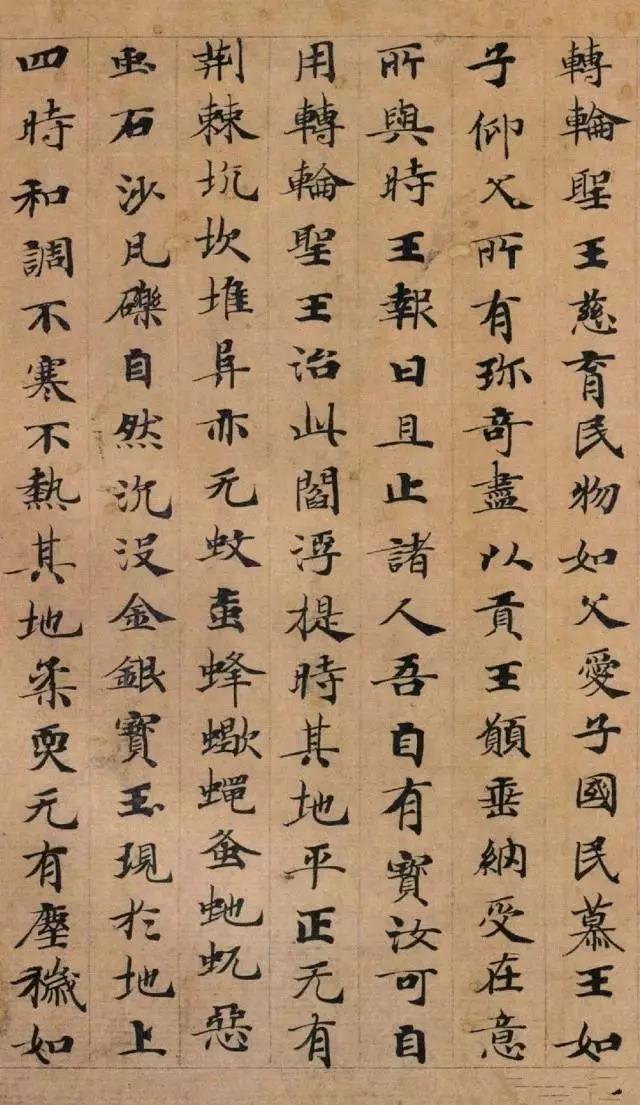 轉輪聖王慈育民物如父愛子國民慕王如
子仰父所有珎奇盡以貢王願垂納受在意
所與時王報曰且止諸人吾自有寳汝可自
用轉輪聖王治此閻浮提時其地平正无有
荆棘坑坎堆阜亦无蚊䖟蜂蠍蠅蚤虵蚖惡
虫石沙凡礫自然沉没金銀寳玉現於地上
四時和調不寒不熱其地柔耎无有塵穢如